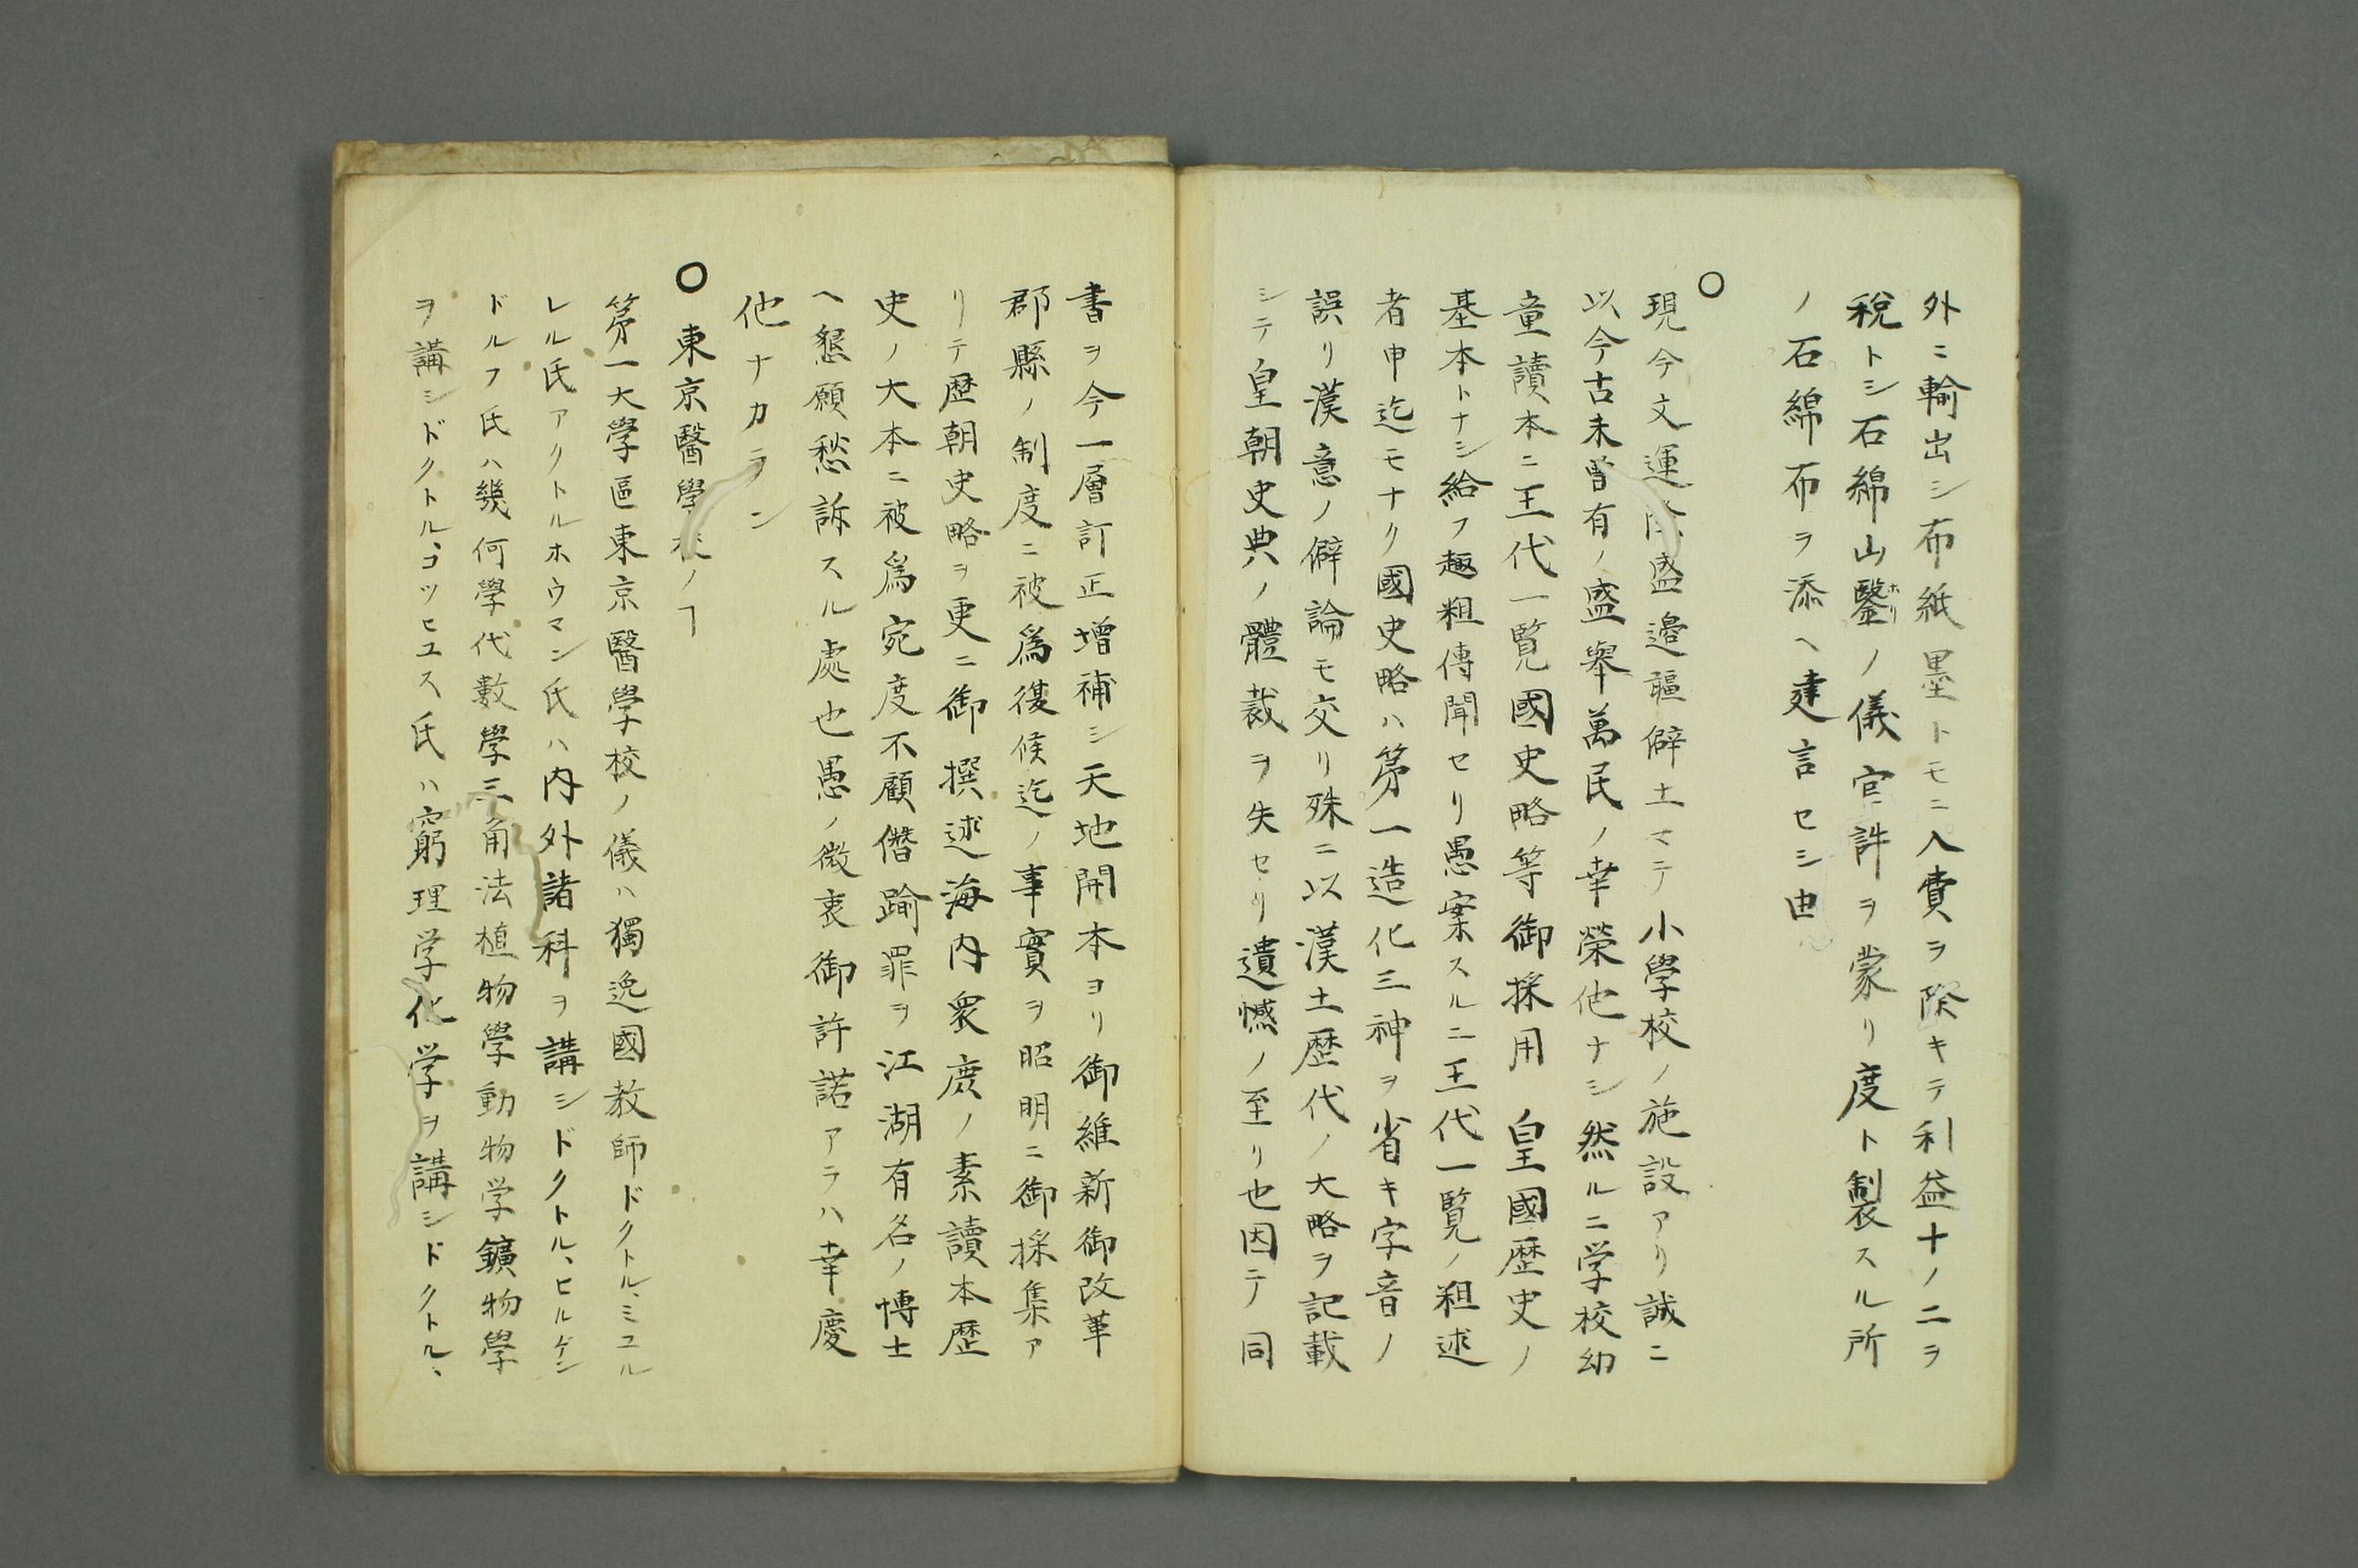 外ニ輸出シ布紙墨トモニ入費ヲ除キテ利益十ノ二ヲ
税トシ石綿山鑿ホリノ儀官許ヲ蒙リ度ト製スル所
ノ石綿布ヲ添ヘ建言セシ由
○
現今文運隆盛邉疆僻土マテ小學校ノ施設アリ誠ニ
以今古未曽有ノ盛舉萬民ノ幸榮他ナシ然ルニ学校幼
童讀本ニ王代一覧國史略等御採用 皇國歴史ノ
基本トナシ給フ趣粗傳聞セリ愚案スルニ王代一覧ノ粗述
者申迄モナク國史略ハ第一造化三神ヲ省キ字音ノ
誤リ漢意ノ僻論モ交リ殊ニ以漢土歴代ノ大略ヲ記載
シテ皇朝史典ノ體裁ヲ失セリ遺憾ノ至リ也因テ同
書ヲ今一層訂正増補シ天地開本ヨリ御維新御改革
郡縣ノ制度ニ被爲復候迄ノ事實ヲ昭明ニ御採集ア
リテ歴朝史略ヲ更ニ御撰述海内衆庶ノ素讀本歴
史ノ大本ニ被爲宛度不顧僭踰罪ヲ江湖有名ノ博士
ヘ懇願愁訴スル處也愚ノ微衷御許諾アラハ幸慶
他ナカラン
○東京醫學校ノヿ
第一大學區東京醫學校ノ儀ハ獨逸國教師ドクトル、ミユル
レル氏アクトルホウマン氏ハ内外諸科ヲ講シドクトル、ヒルゲン
ドルフ氏ハ幾何學代數學三角法植物學動物学鑛物學
ヲ講シドクトル、コツヒユス氏ハ窮理学化学ヲ講シドクトル、